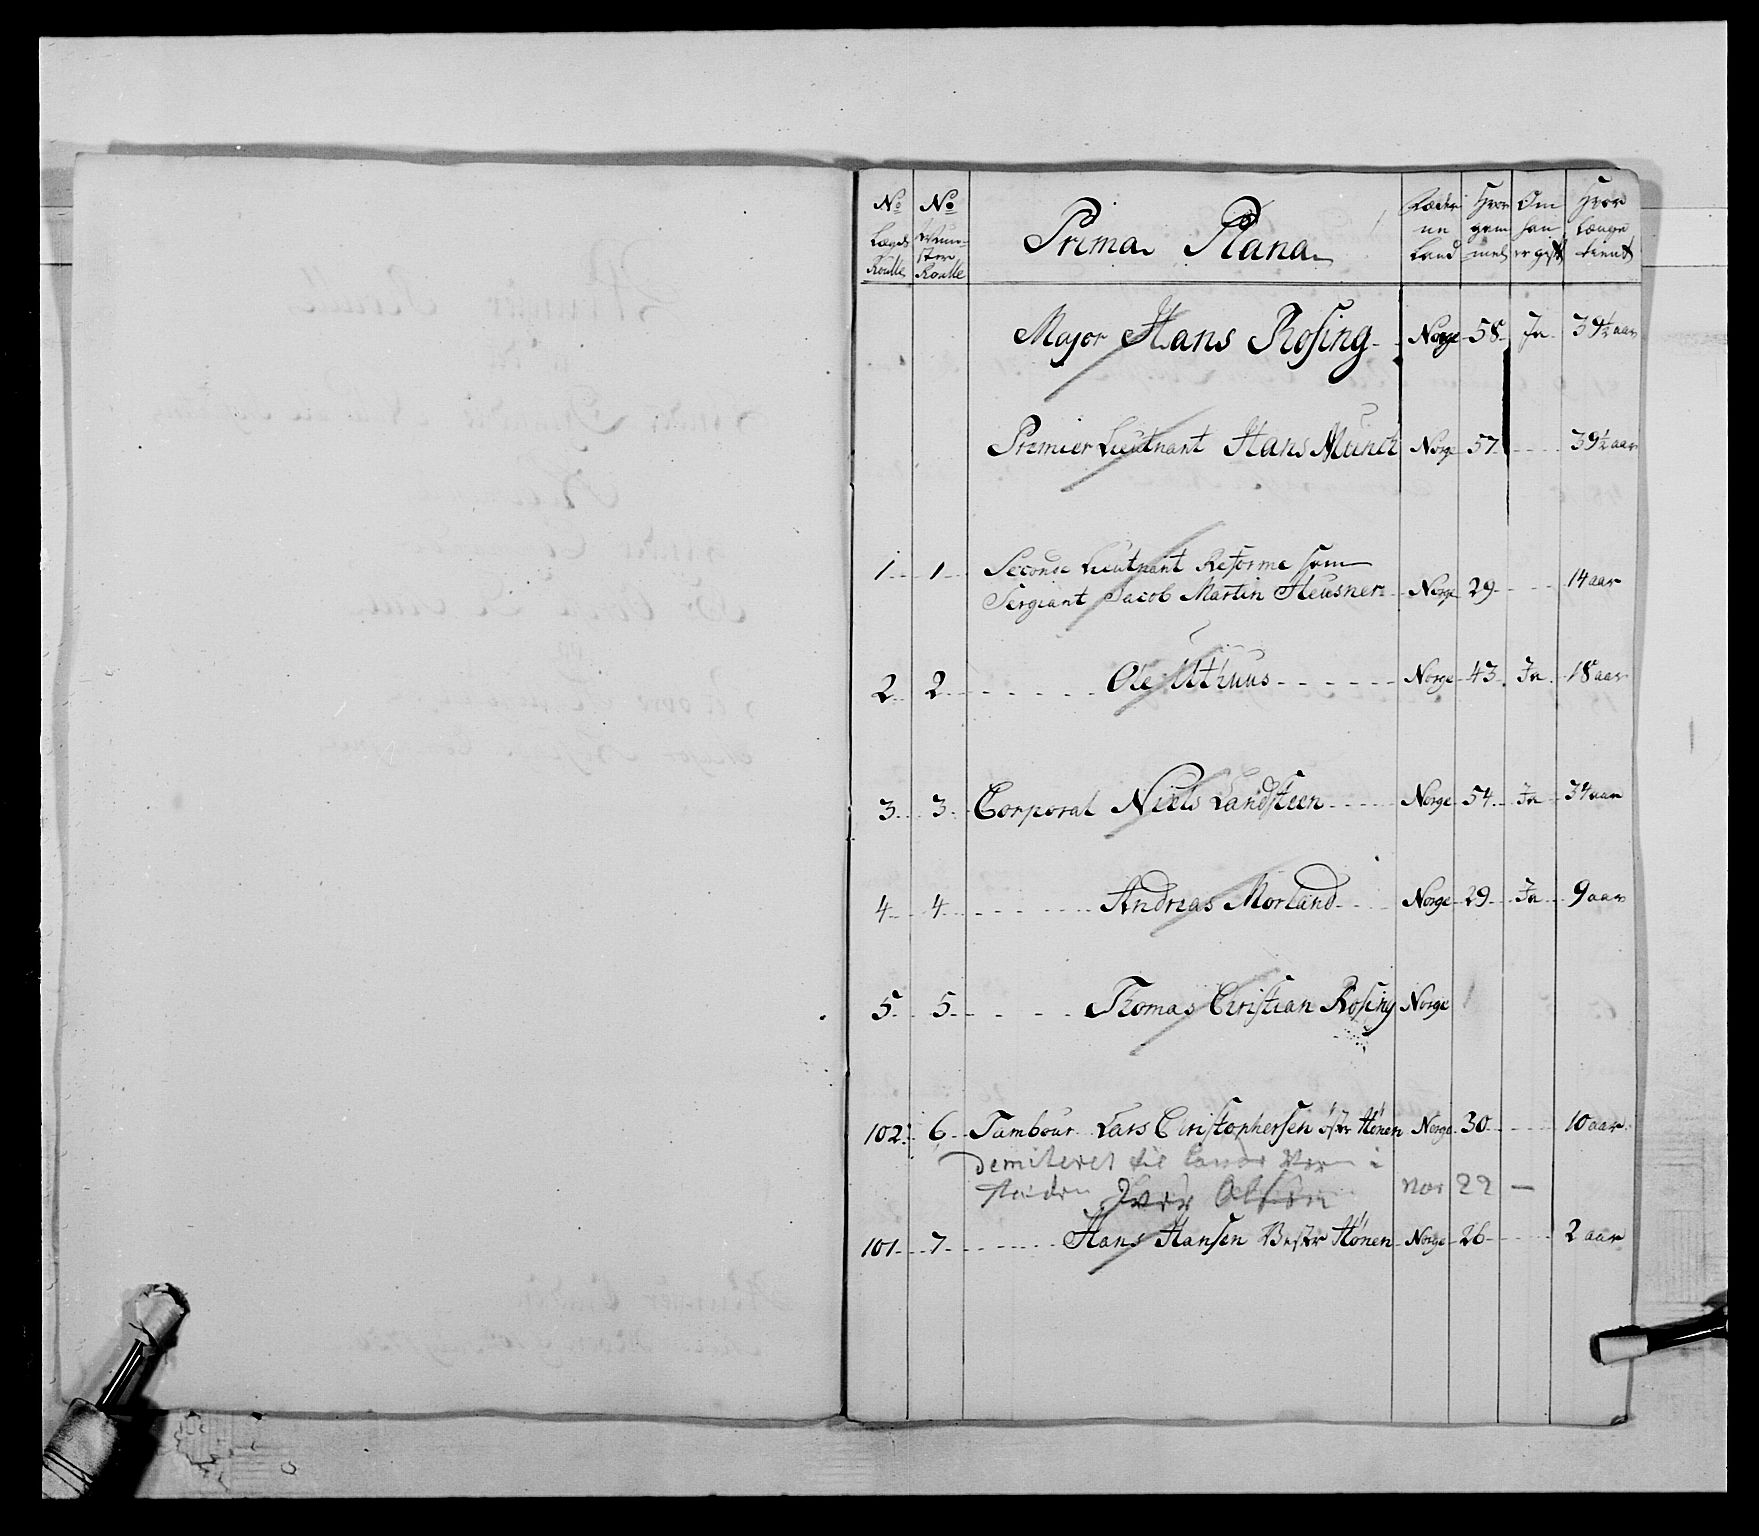 No Lægds Roulle | No Mun- ster Roulle | Prima Plana | Fæder ne Land | Hvor gam mel | Om han er gift | Hvor længe tient
Major Hans Rosing Norge 58 Ja 39½ aar
Premier Lieutnant Hans Munch Norge 57 39½ aar
1 1 Seconde Lieutnant Reforme som
Sergiant Jacob Martin Heusner Norge 29 14 aar
2 2 Ole Uthuus Norge 43 Ja 18 aar
3 3 Corporal Niels Landsteen Norge 54 Ja 34 aar
4 4 Andreas Morland Norge 29 Ja 9 aar
5 5 Thomas Christian Rosing Norge
102 6 Tambour Lars Christophersen østr Hønen Norge 30 10 aar
demiteret til Land i
steden Iver Olsen nor 22 —
101 7 Hans Hansen Vestr Hønen Norge 26 2 aar